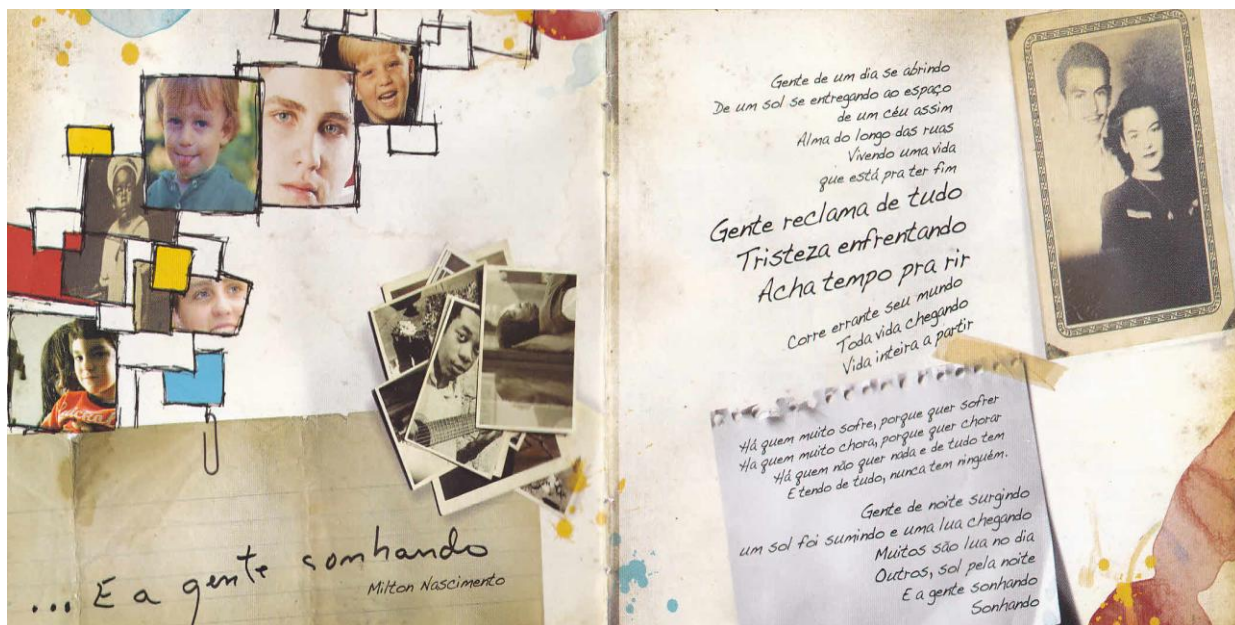 ... E a gente sonhando
Milton Nascimento
Gente de um dia se abrindo
De um sol se entregando ao espaço
de um céu assim
Alma do longo das ruas
Vivendo uma vida
que está pra ter fim
Gente reclama de tudo
Tristeza enfrentando
Acha tempo pra rir
Corre errante seu mundo
Toda vida chegando
Vida inteira a partir
Há quem muito sofre, porque quer sofrer
Ha quem muito chora, porque quer chorar
Há quem não quer nada e de tudo tem
E tendo de tudo, nunca tem ninguém.
Gente de noite surgindo
um sol foi sumindo e uma lua chegando
Muitos são lua no dia
Outros, sol pela noite
E a gente sonhando
Sonhando